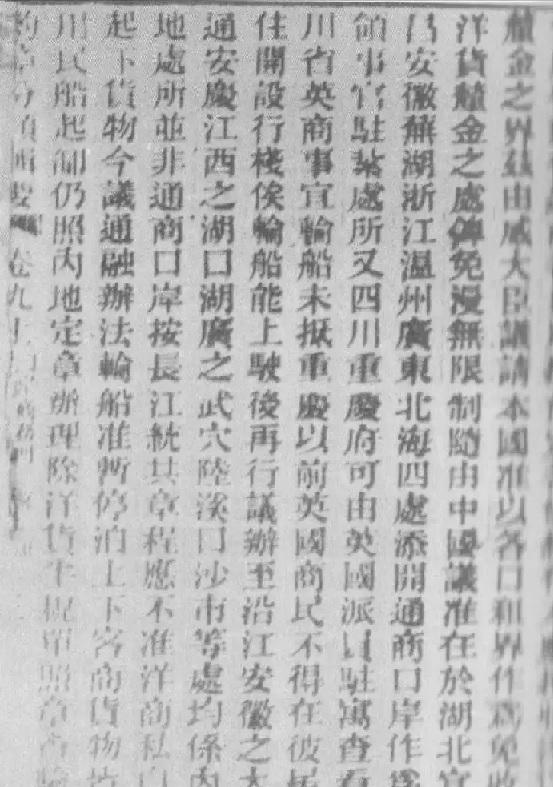 釐金之界玆由威大臣議請本國准以各口租界作爲免收
洋貨釐金之處俾免漫無限制隨由中國議准在於湖北宜
昌安徽蕪湖浙江溫州廣東北海四處添開通商口岸作爲
領事官駐紮處所又四川重慶府可由英國派員駐寓查看
川省英商事宜輪船未抵重慶以前英國商民不得在彼居
住開設行棧俟輪船能上駛後再行議辦至沿江安徽之大
通安慶江西之湖口湖廣之武穴陸溪口沙市等處均係內
地處所並非通商口岸按長江統共章程應不准洋商私自
起下貨物今議通融辦法輪船准暫停泊上下客商貨物皆
用民船起卸仍照內地定章辦理除洋貨半稅單照章查驗
約章分類輯要 卷九上